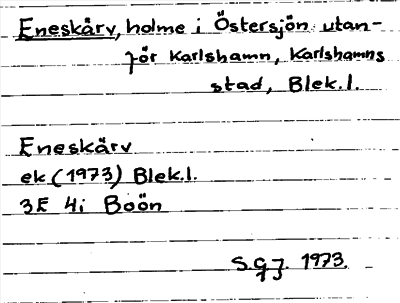 Eneskärv, holme i Östersjön utan-
för Karlshamn, Karlshamns
stad, Blek.l.
Eneskärv
ek (1973) Blek.l.
3E 4i Boön
S.G.J. 1973.